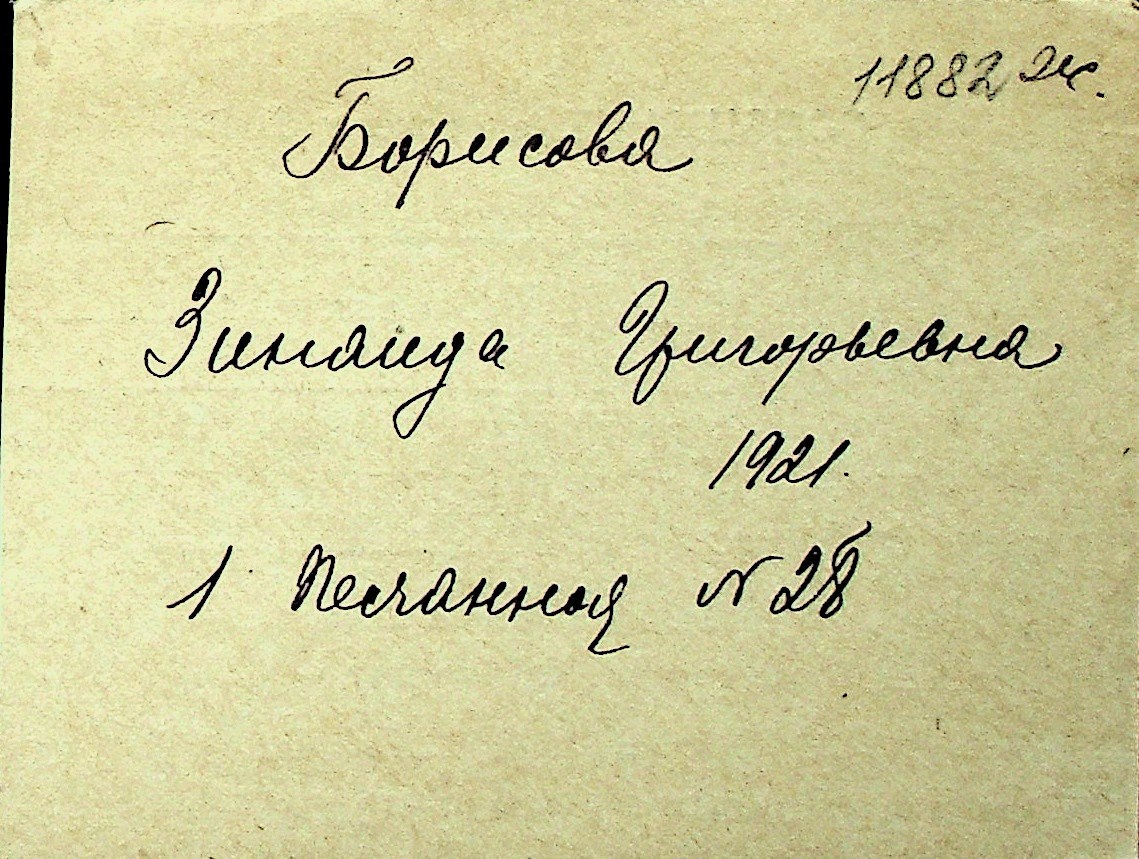 11882 ж.
Борисова
Зинаида Григорьевна
1921.
1 Песчанная № 28